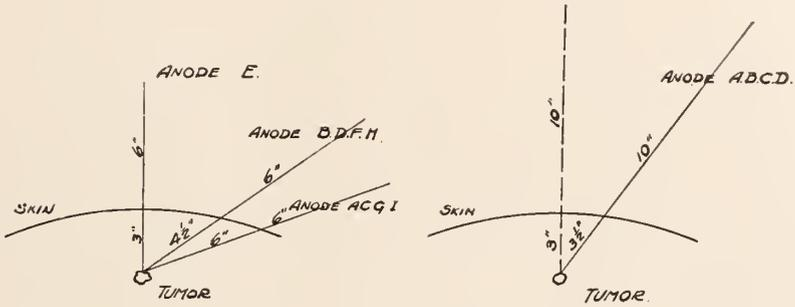 ANODE E.
6"
ANODE B.D.F.H.
6"
6" ANODE A C G I
SKIN
3"
4½"
6"
TUMOR
10"
ANODE A.B.C.D.
10"
SKIN
3"
3½"
TUMOR.